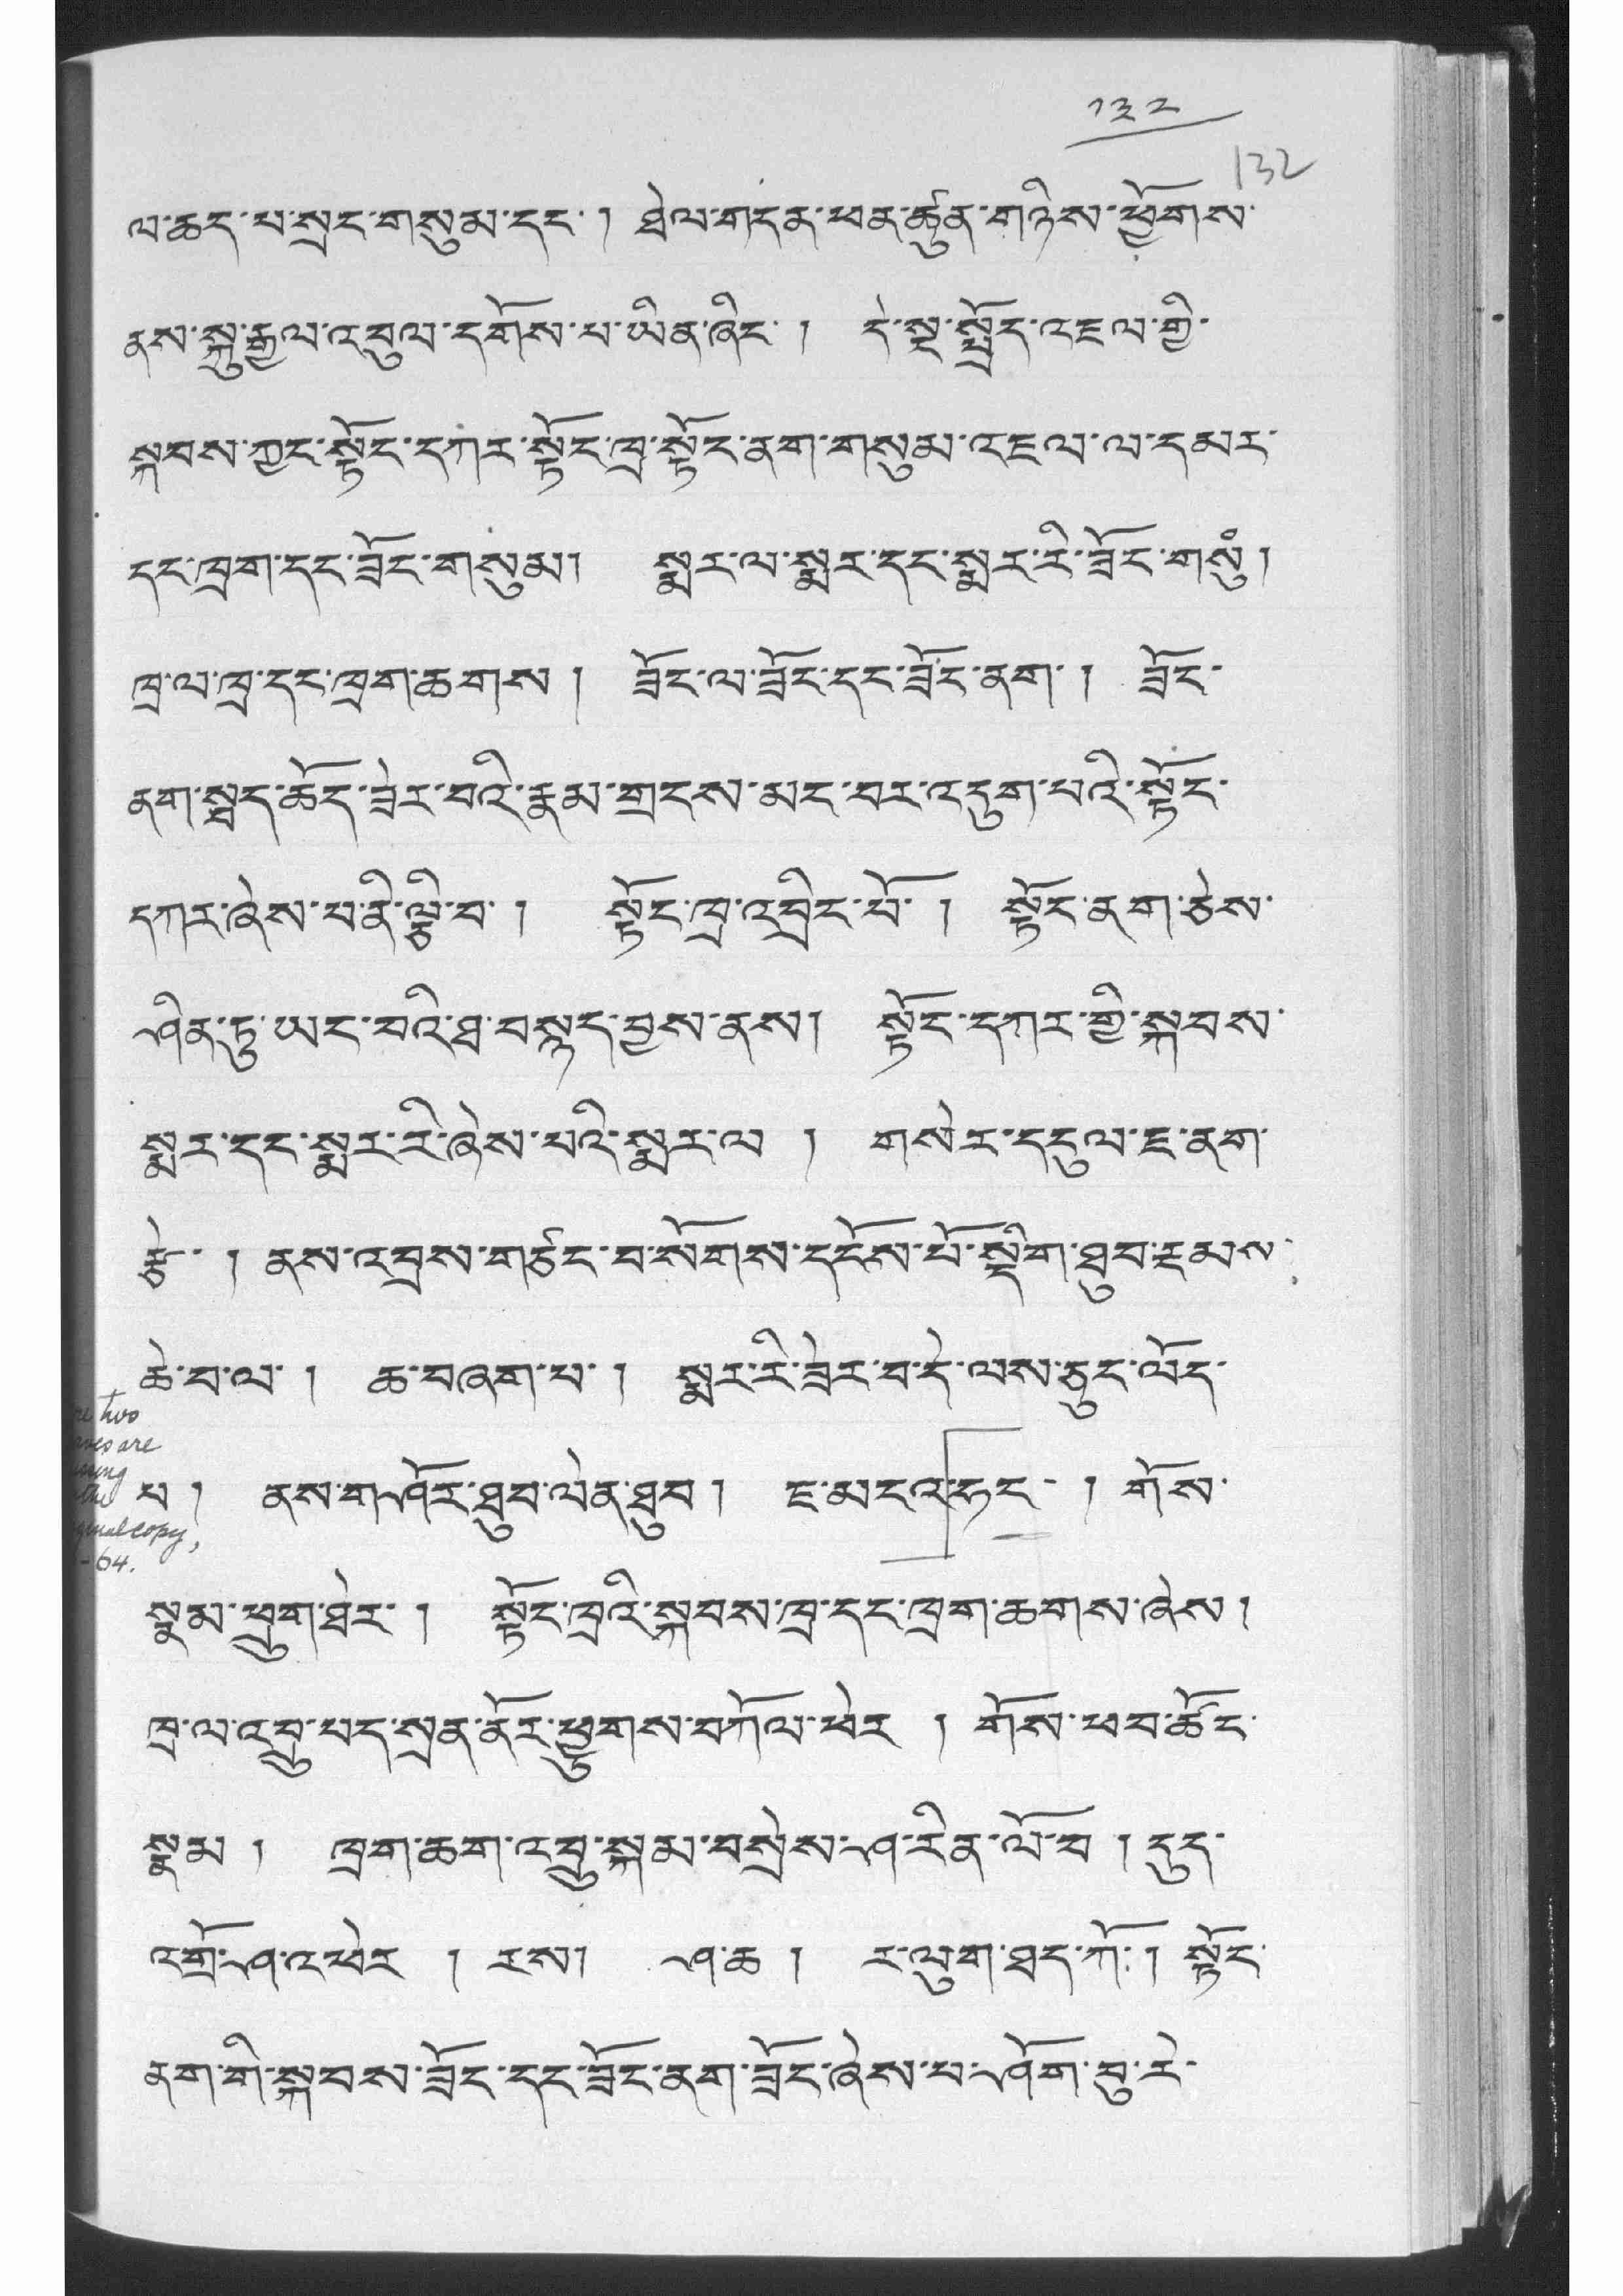 ༡༣༢
132
ལ་ཆད་པ་སྲང་གསུམ་དང་། ཐེལ་གདན་ཕན་ཚུན་གཉིས་ཕྱོགས་
ནས་སྐུ་རྒྱལ་འབུལ་དགོས་པ་ཡིན་ཞིང་། དེ་སྔ་སྤྲོད་འཇལ་གྱི་
སྐབས་ཀྱང་སྟོང་དཀར་སྟོང་ཁྲ་སྟོང་ནག་གསུམ་འཇལ་ལ་དམར་
དང་ཁྲག་དང་ཟོང་གསུམ། སྨར་ལ་སྨར་དང་སྨར་རི་ཟོང་གསུཾ།
ཁྲ་ལ་ཁྲ་དང་ཁྲག་ཆགས། ཟོང་ལ་ཟོང་དང་ཟོང་ནག །ཟོང་
ནག་སྦྲད་ཆོད་ཟེར་བའི་རྣམ་གྲངས་མང་བར་འདུག་པའི་སྟོང་
དཀར་ཞེས་པ་ནི་ལྕི་བ། སྟོང་ཁྲ་འབྲིང་པོ། སྟོང་ནག་ཅེས་
ཤིན་ཏུ་ཡང་བའི་ཐ་བསྙད་བྱས་ནས། སྟོང་དཀར་གྱི་སྐབས་
སྨར་དང་སྨར་རི་ཞེས་པའི་སྨར་ལ། གསེར་དངུལ་ཇ་ནག་
རྩེ། ནས་འབྲས་གཙང་བ་སོགས་དངོས་པོ་སྡིག་ཐུབ་རྣམས་
ཆེ་བ་ལ། ཆ་བཞག་པ། སྨར་རི་ཟེར་བ་དེ་ལས་ཅུང་ལོད་
པ། ནས་གཤོར་ཐུབ་ལེན་ཐུབ། ཇ་མངའ་ཧང་། གོས་
སྣམ་ཕྲུག་ཐེར། སྟོང་ཁྲའི་སྐབས་ཁྲ་དང་ཁྲག་ཆགས་ཞེས།
ཁྲ་ལ་འབྲུ་པད་སྲན་ནོར་ཕྱུགས་བཀོལ་ཕེར། གོས་ཕབ་ཚོང་
སྣམ། ཁྲག་ཆག་འབྲུ་སྐམ་བསྲེས་ཤ་རིན་ལོ་བ། དུད་
འགྲོ་ཤ་འཕེར། རས། ཤ་ཆ། ར་ལུག་ཐང་ཀོ། སྟོང་
ནག་གི་སྐབས་ཟོང་དང་ཟོང་ནག་ཟོང་ཞེས་པ་ཤོག་བུ་རེ་
two
are
copy,
-64.